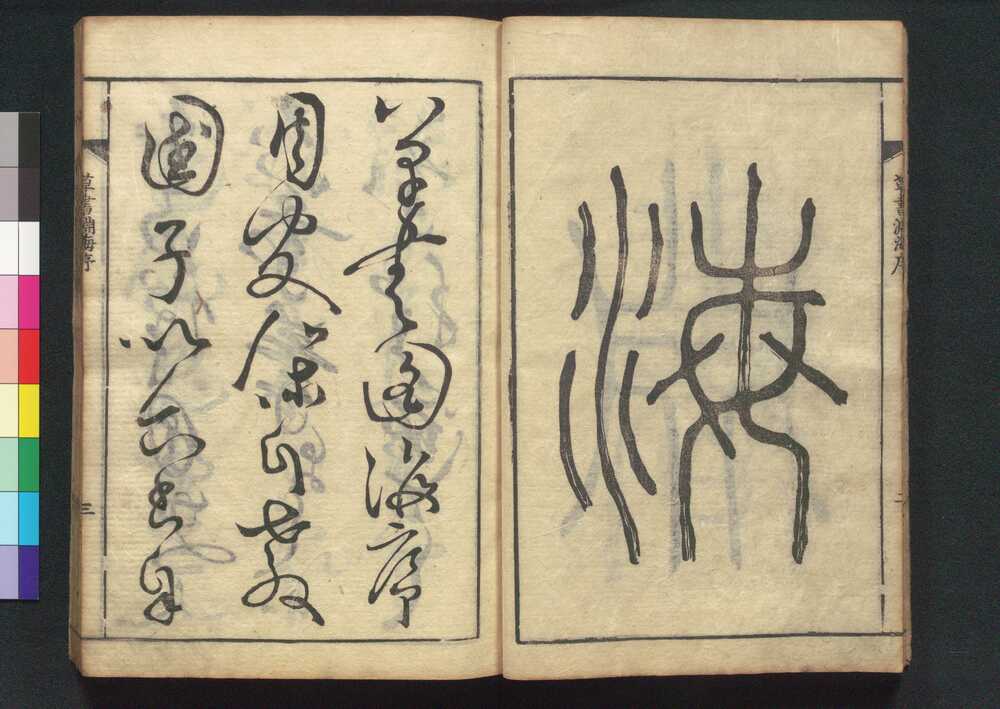 海
草書淵海序
二
草書淵海序
周保氏教
國子以六書自
草書淵海序
三